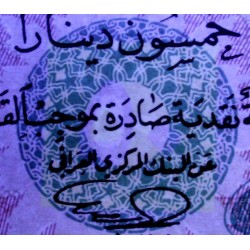 خمسون دينارا
نقدية صادرة بموجب الق
عن البنك المركزي العراقي